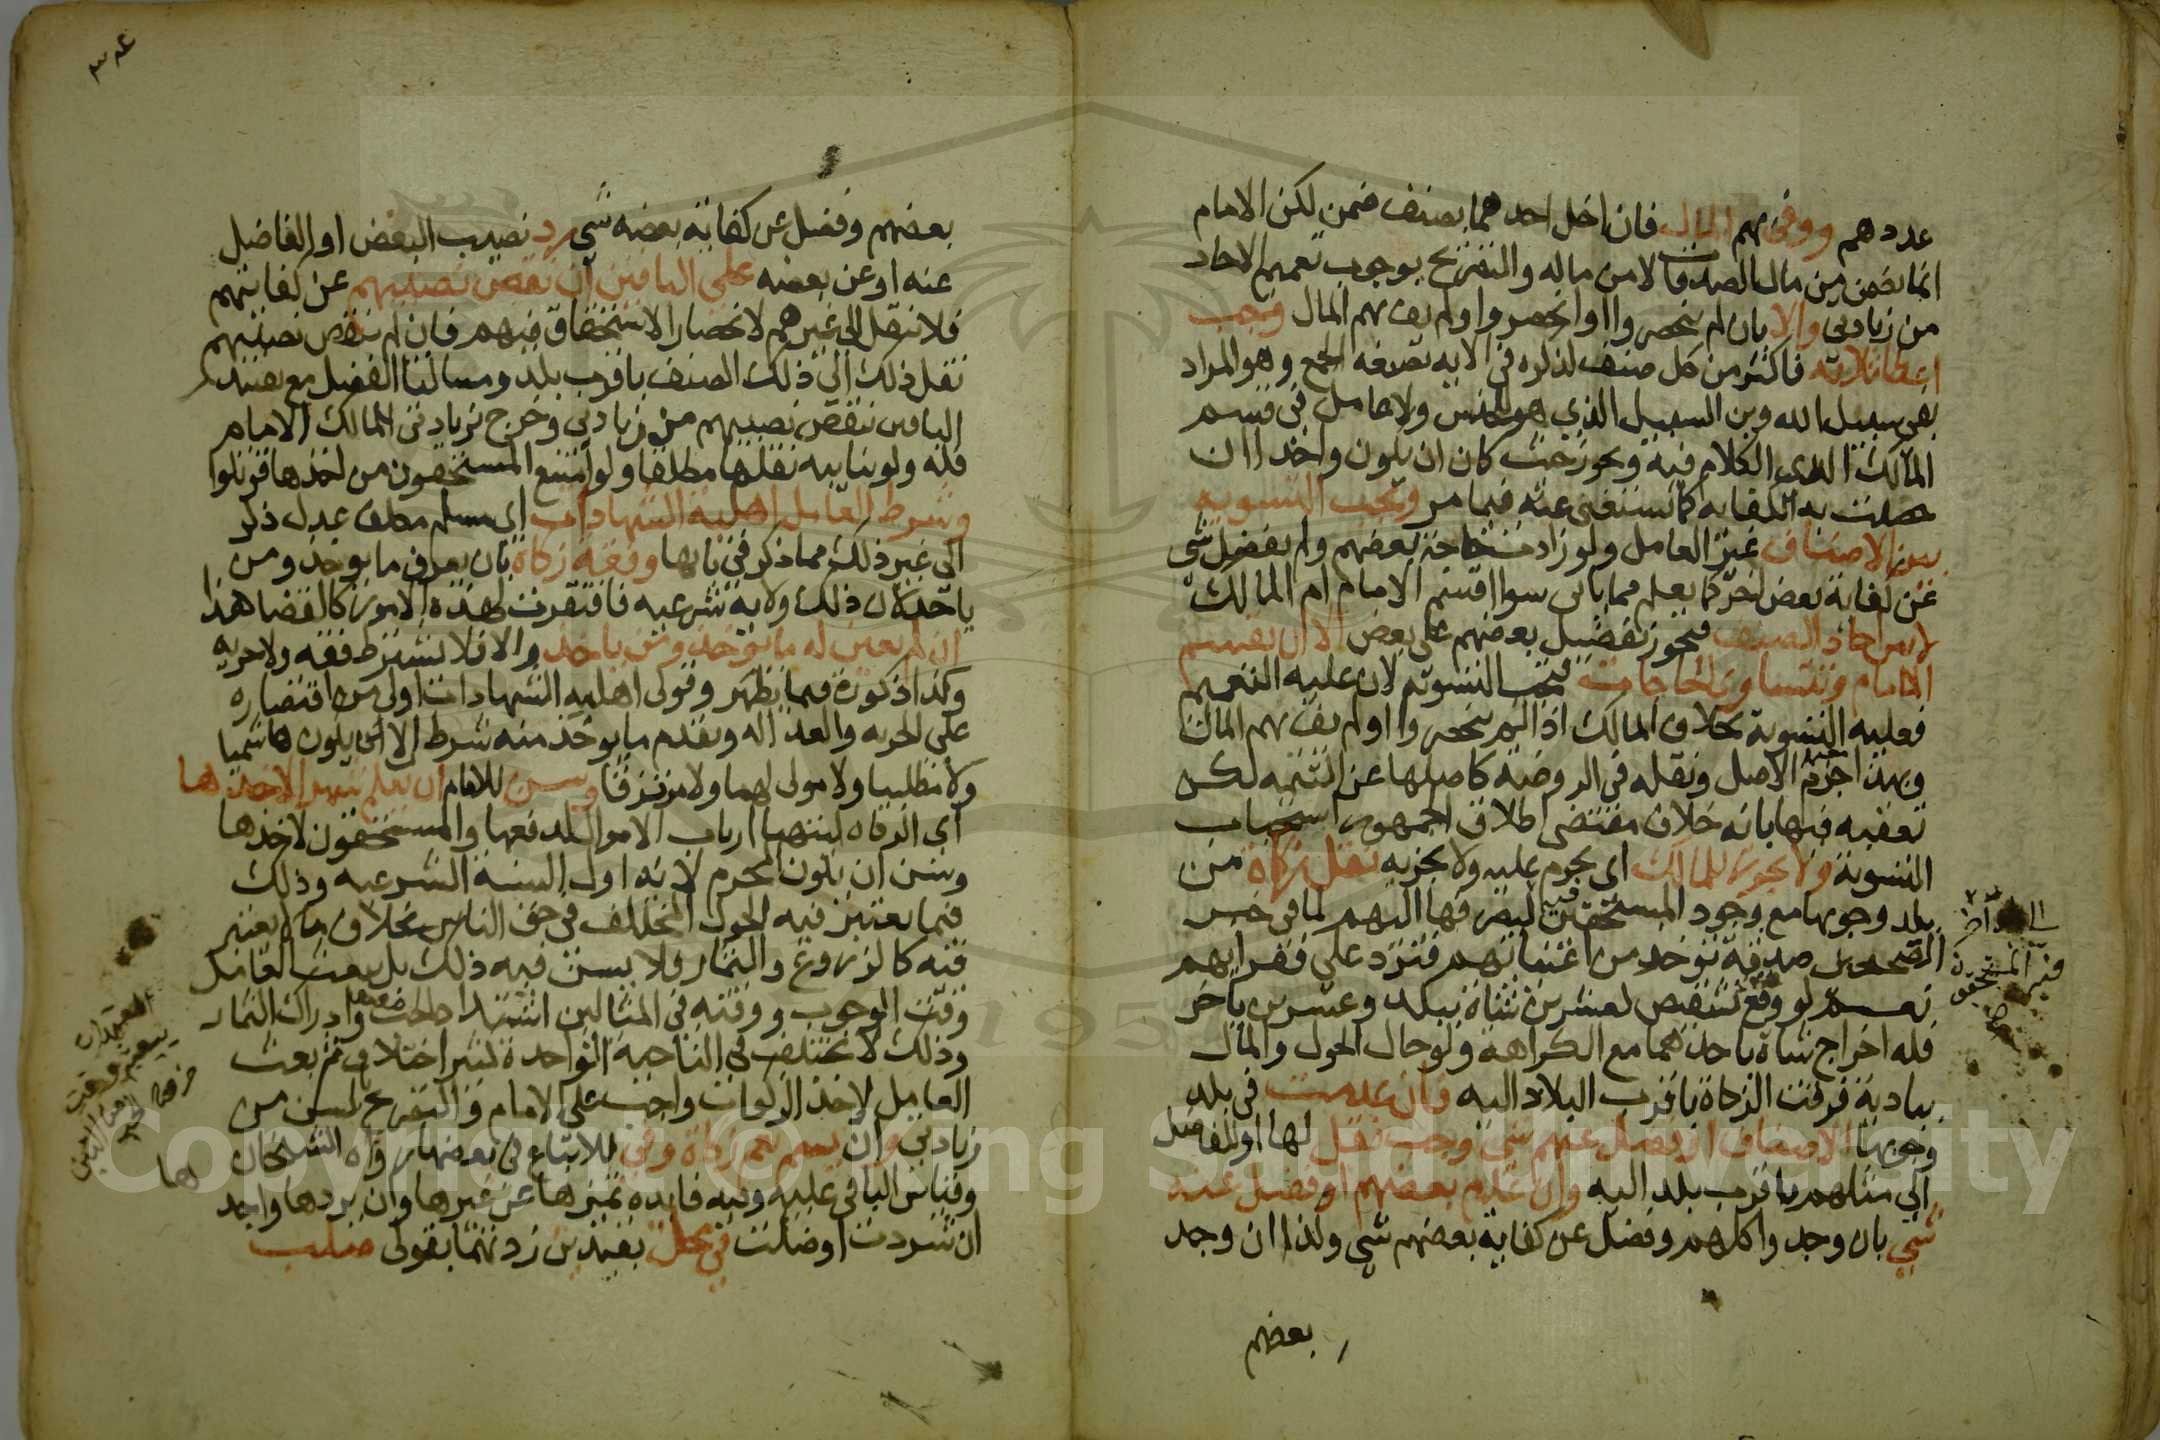 عددهم ووفى بهم المال فان اخل احدهما بصنف ضمن لكن الامام
انما يضمن من مال الصدقات لا من ماله والتصريح بوجوب تعميم الاحاد
من زيادتي والا بان لم ينحصروا او انحصروا ولم يف بهم المال وجب
اعطا ثلاثة فاكثر من كل صنف لذكره في الاية بصيغة الجمع وهو المراد
بفي سبيل الله وبن السبيل الذي هو للجنس ولا عامل في قسم
المالك الذي الكلام فيه ويجوز حيث كان ان يكون واحدا ان
حصلت به الكفاية كما يستغنى عنه فيما مر وتجب التسوية
بين الاصناف غير العامل ولو زادت حاجة بعضهم ولم يفضل شي
عن كفاية بعض اخر كما يعلم مما ياتي سوا اقسم الامام ام المالك
لا بين احاد الصنف فيجوز تفضيل بعضهم على بعض الا ان يقسم
الامام وتتساوى الحاجات فتجب التسوية لان عليه التعميم
فعليه التسوية بخلاف المالك اذا لم ينحصروا او لم يف بهم المال
وبهذا جزم الاصل ونقله في الروضة كاصلها عن التتمة لكن
تعقبه فيها بانه خلاف مقتضى اطلاق الجمهور استحباب
التسوية ولا يجوز للمالك اي يحرم عليه ولا يجزيه نقل زكاة من
بلد وجوبها مع وجود المستحقين فيه ليصرفها اليهم لما في خبر
الصحيحين صدقة توخذ من اغنيائهم فترد على فقرايهم
نعم لو وقع تشقيص لعشرين شاة ببلد وعشرين باخر
فله اخراج شاة باحدهما مع الكراهة ولو حال الحول والمال
ببادية فرقت الزكاة باقرب البلاد اليه فان عدمت في بلد
وجوبها الاصناف او فضل عنهم شي وجب نقل لها او للفاضل
الى مثلهم باقرب بلد اليه وان عدم بعضهم او فضل عنه
شي بان وجدوا كلهم وفضل عن كفاية بعضهم شي وكذا ان وجد
بعضهم
المستحقون
بعضهم وفضل عن كفاية بعضه شي رد نصيب البعض او الفاضل
عنه او عن بعضه على الباقين ان نقص نصيبهم عن كفايتهم
فلا ينقل الى غيرهم لانحصار الاستحقاق فيهم فان لم ينقص نصيبهم
نقل ذلك الى ذلك الصنف باقرب بلد ومسالتا الفضل مع تقييد
الباقين بنقص نصيبهم من زيادتي وخرج بزيادتي المالك الامام
فله ولو بنايبه نقلها مطلقا ولو امتنع المستحقون من اخذها قوتلوا
وشرط العامل اهلية الشهادات اي مسلم مكلف عدل ذكر
الى غير ذلك مما ذكر في بابها وفقه زكاة بان يعرف ما يوخذ ومن
ياخذ لان ذلك ولاية شرعية فافتقرت لهذه الامور كالقضا هذا
ان لم يعين له ما يوخذ ومن ياخذ والا فلا يشترط فقه ولا حرية
وكذا ذكورة فيما يظهر وقولي اهلية الشهادات اولى من اقتصاره
على الحرية والعدالة وتقدم ما يوخذ منه شرط ان لا يكون هاشميا
ولا مطلبيا ولا مولى لهما ولا مرتزقا وسن للامام ان يعلم شهرا لاخذها
اي الزكاة ليتهيا ارباب الاموال لدفعها والمستحقون لاخذها
ويسن ان يكون المحرم لانه اول السنة الشرعية وذلك
فيما يعتبر فيه الحول المختلف في حق الناس بخلاف ما لا يعتبر
فيه كالزروع والثمار ولا يسن فيه ذلك بل يبعث العامل
وقت الوجوب ووقته في المثالين اشتداد الحب وادراك الثمار
وذلك لا يختلف في الناحية الواحدة كثير اختلاف ثم بعث
العامل لاخذ الزكوات واجب على الامام والتصريح بالسن من
زيادتي وان يسم نعم زكاة وفي للاتباع في بعضها رواه الشيخان
وقياس الباقي عليه وفيه فايدة تميزها عن غيرها وان يردها واجد
ها
ان شردت او ضلت في محل بقيدين زدتهما بقولي صلب